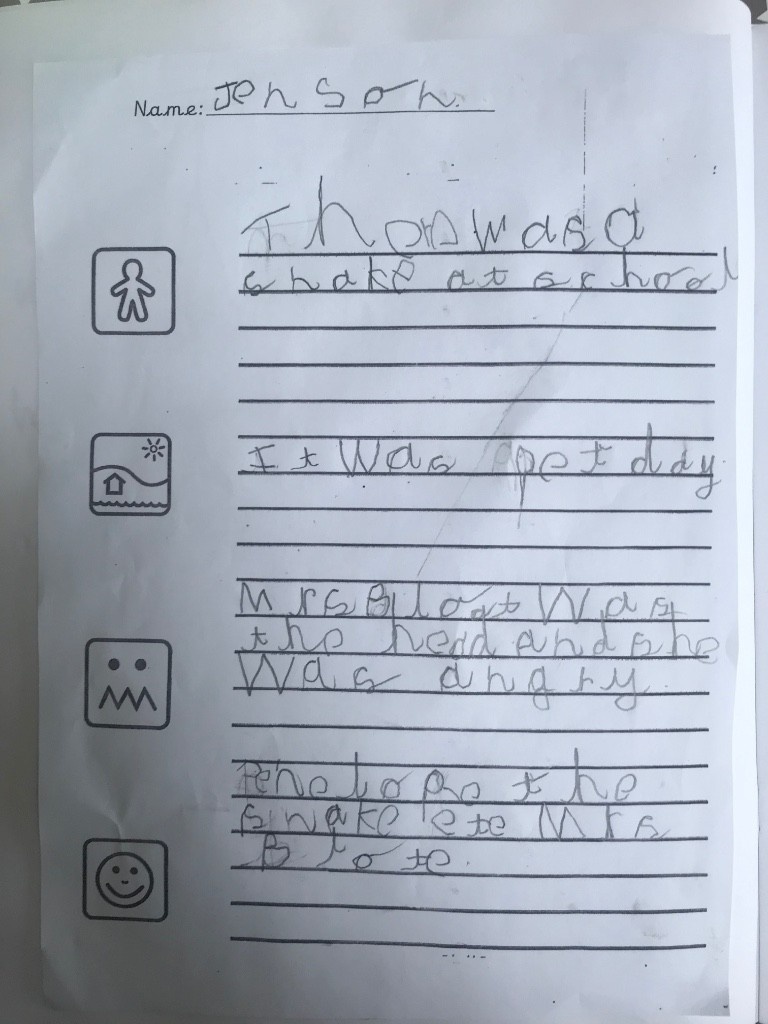 Name: Jenson.
was a
snake at school
It was a pet day.
Mrs Bloat was
the head and she
was angry.
Penelope the
snake ete Mrs
Blote.